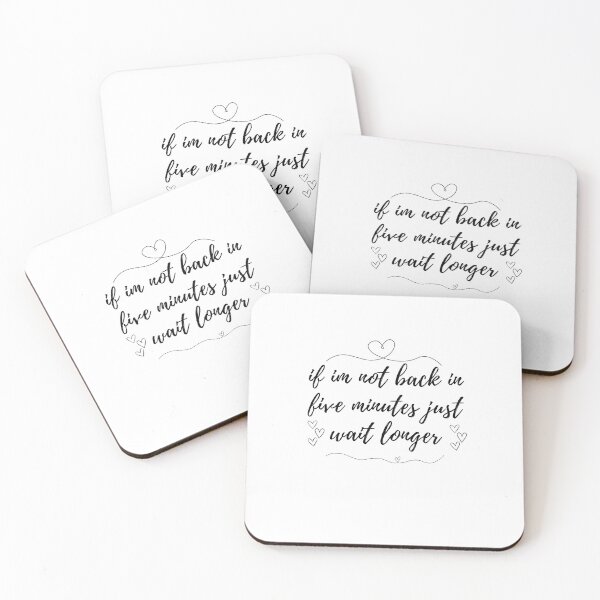 if im not back in
five minutes just
if im not back in
five minutes just
wait longer
if im not back in
five minutes just
wait longer
if im not back in
five minutes just
wait longer